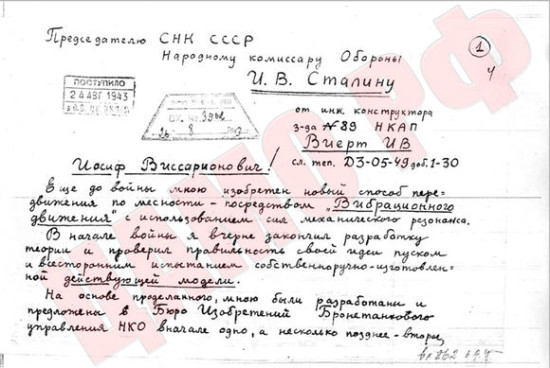 Председателю СНК СССР
Народному комиссару Обороны
И. В. Сталину
1
4
ПОСТУПИЛО
24 АВГ 1943
от инж. конструктора
з-да №89 НКАП
Виерт ИВ
сл. тел. Д3-05-49 доб. 1-30
Иосиф Виссарионович!
Еще до войны мною изобретен новый способ пере=
движения по местности - посредством „Вибрационного
движения" с использованием сил механического резонанса.
В начале войны я вчерне закончил разработку
теории и проверил правильность своей идеи пуском
и всесторонним испытанием собственноручно-изготовлен=
ной действующей модели.
На основе проделанного, мною были разработаны и
предложены в Бюро Изобретений Бронетанкового
управления НКО вначале одно, а несколько позднее - второе,
ЦАМО.РФ